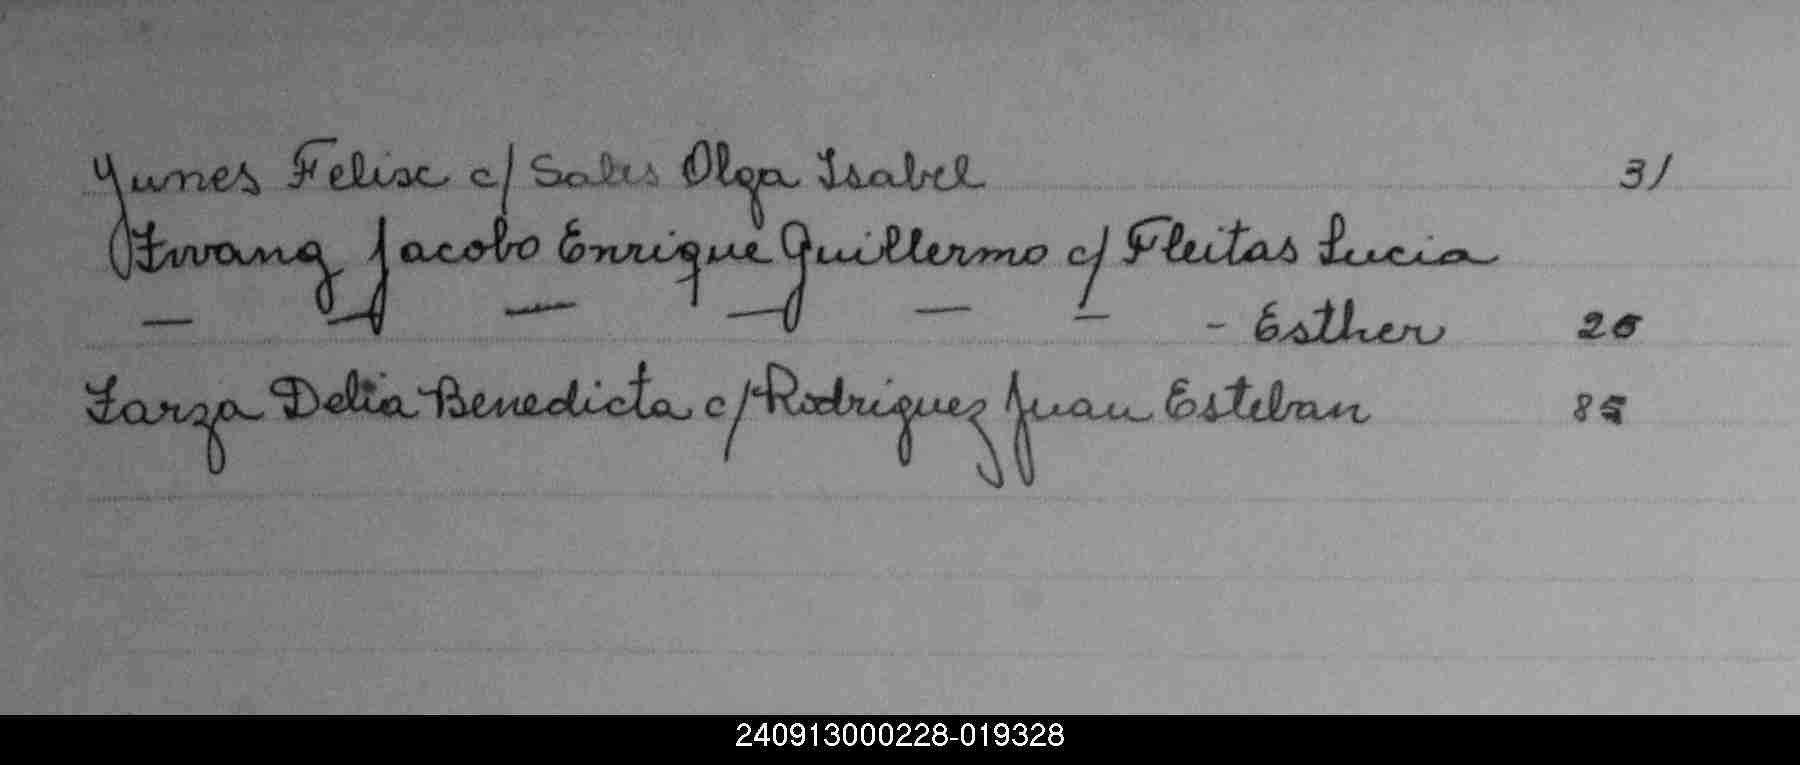 Yunes Felix c/ Sales Olga Isabel 31
Zwang Jacobo Enrique Guillermo c/ Fleitas Lucia
— — — — — — - Esther 20
Zarza Delia Benedicta c/ Rodriguez Juan Esteban 85
240913000228-019328